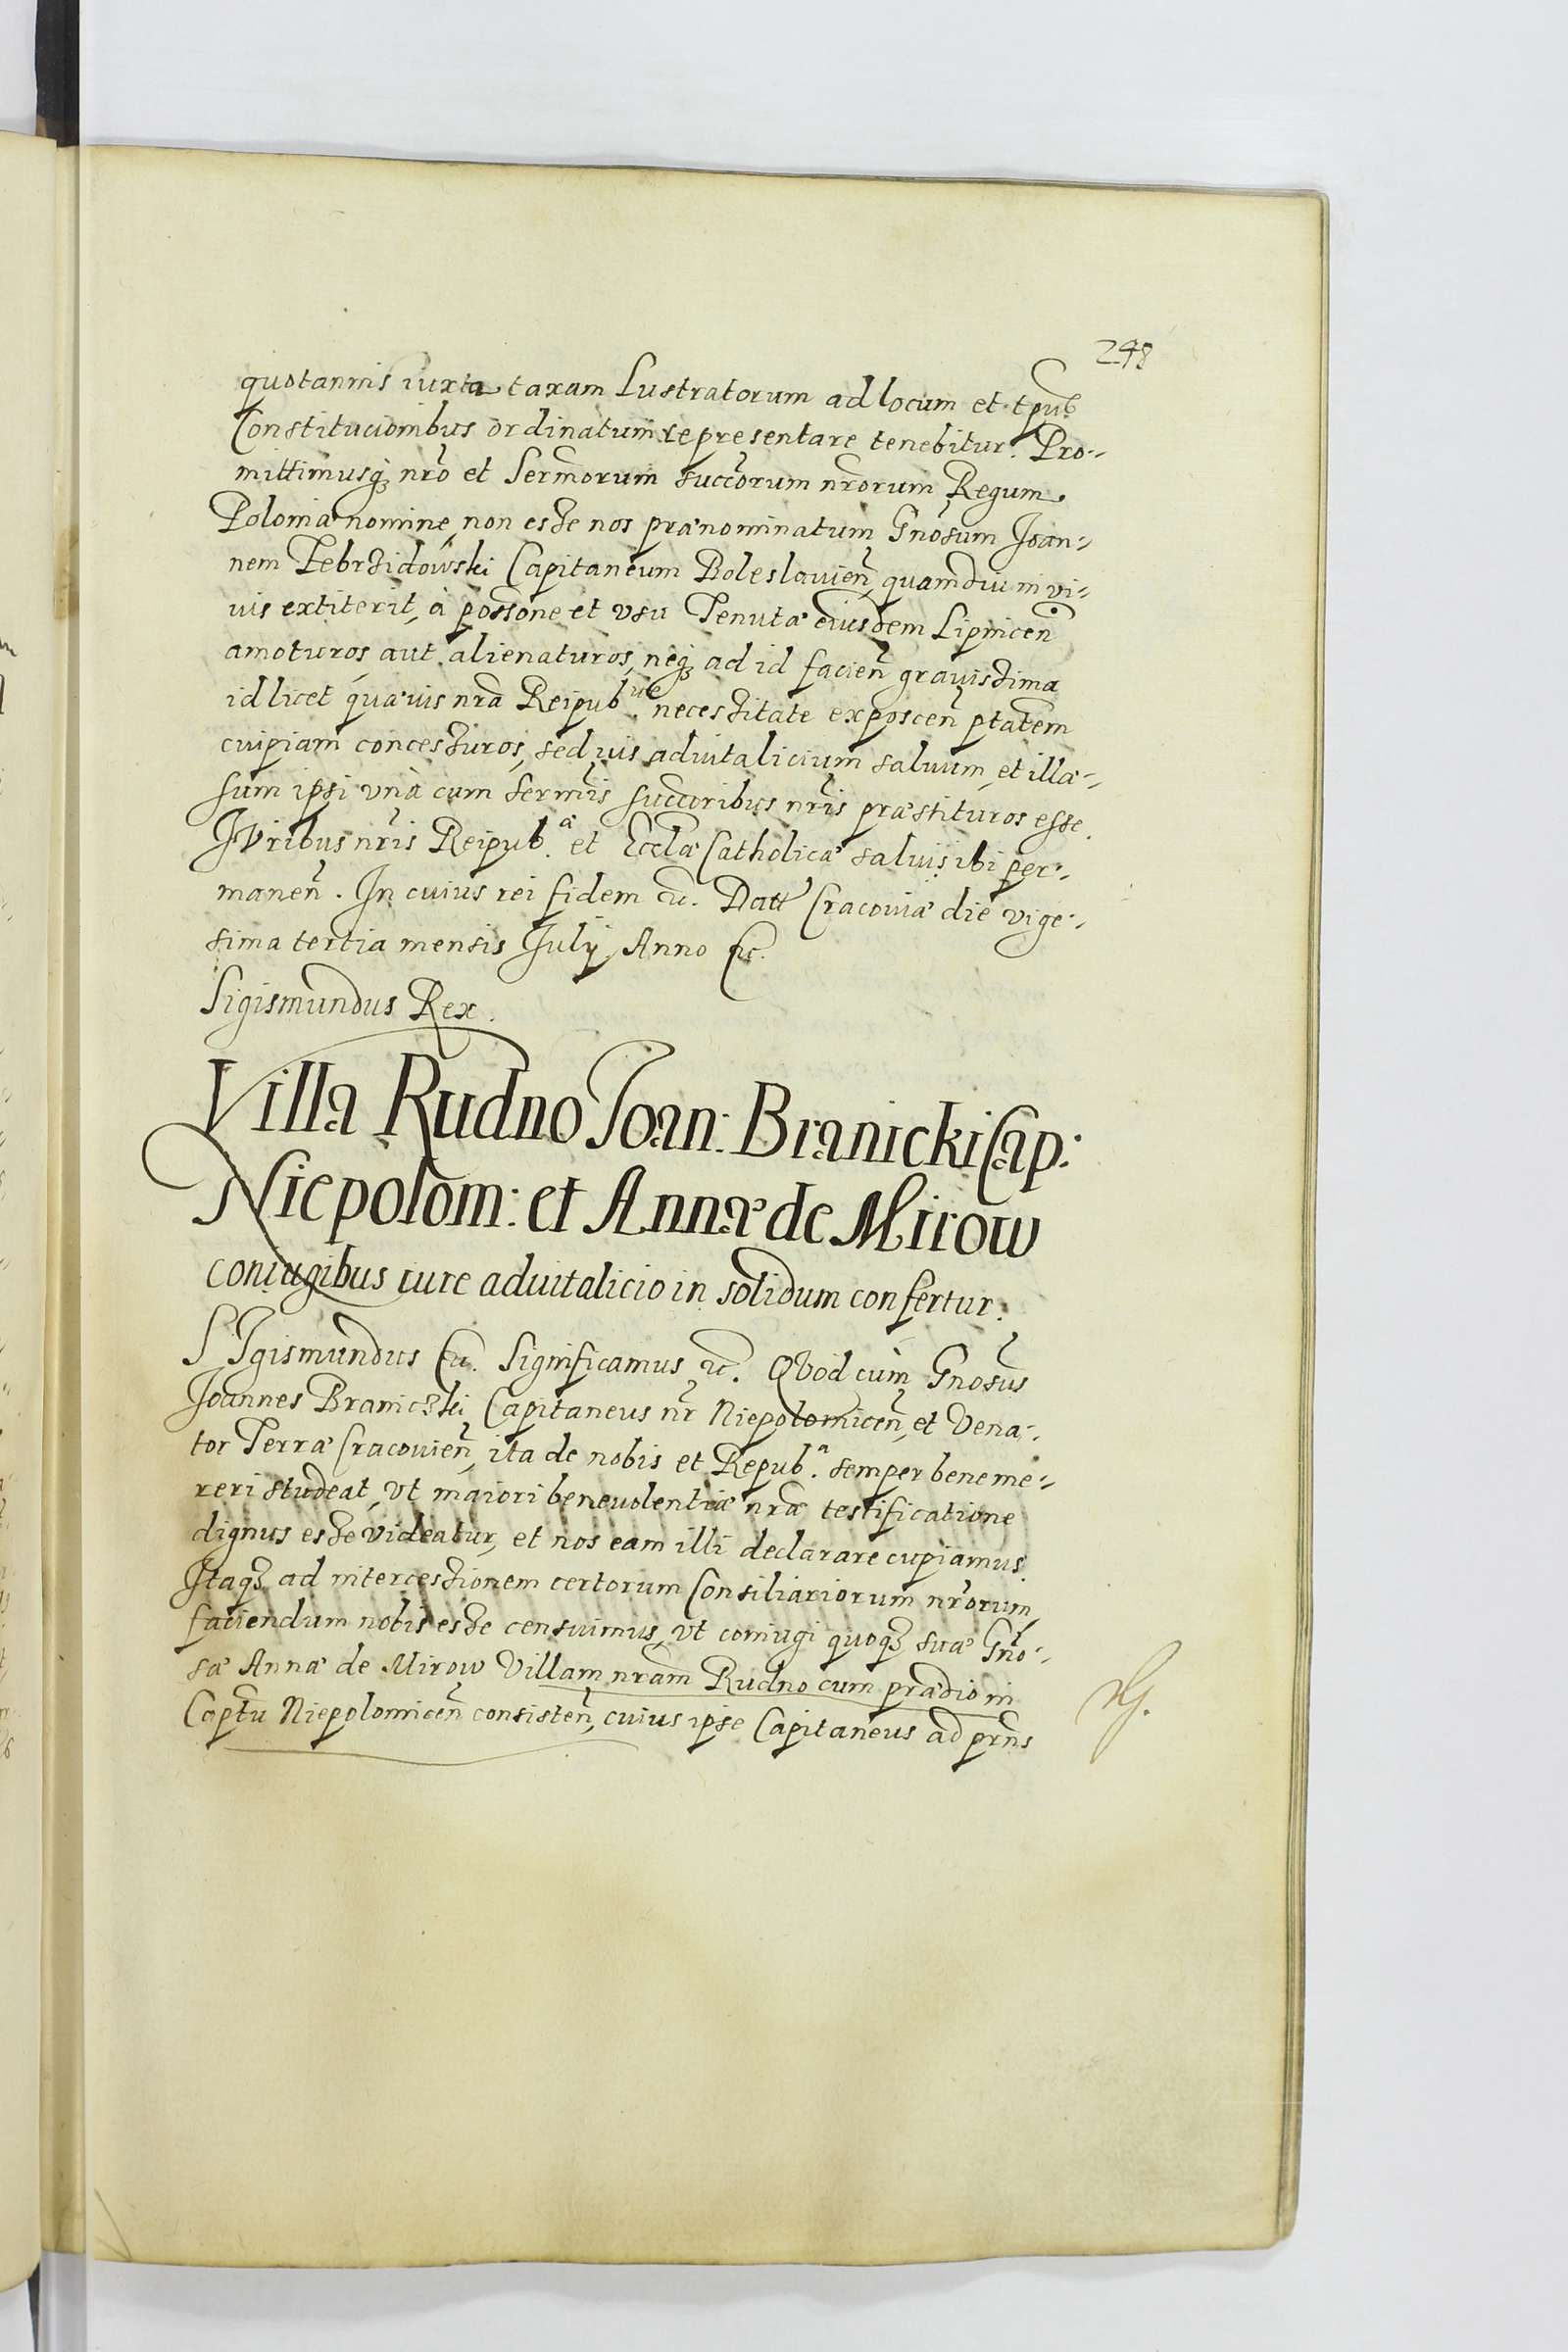 248
quotannis iuxta taxam Lustratorum ad locum et tpus
Constitucionibus ordinatum representare tenebitur. Pro-
mittimusq; nro et Sermorum succorum nrorum Regum
Poloniæ nomine, non esse nos prænominatum Gnosum Joan-
nem Zebrzidowski Capitaneum Boleslauien, quamdiu in vi-
uis extiterit, à possone et vsu Tenutæ eiusdem Lipnicen
amoturos aut alienaturos, neq; ad id facien grauissima
id licet quæuis nra Reipub. necessitate exposcen ptatem
cuipiam concessuros, sed ius aduitalicium saluum, et illæ-
sum ipsi vnà cum sermis succoribus nris præstituros esse.
IVribus nris Reipub. et Ecclæ Catholicæ saluis ibi per-
manen. In cuius rei fidem etc. Datt Cracouiæ die vige-
sima tertia mensis July Anno etc.
Sigismundus Rex.
Villa Rudno Joan: Branicki Cap:
Niepolom: et Annæ de Mirow
coniugibus iure aduitalicio in solidum confertur.
SIgismundus etc. Significamus etc. QVod cum Gnosus
Joannes Braniczki Capitaneus nr Niepolomicen, et Vena-
tor Terræ Cracouien, ita de nobis et Repub.ª semper bene me-
reri studeat, vt maiori beneuolentiæ nræ testificatione
dignus esse videatur, et nos eam illi declarare cupiamus.
Itaq; ad intercessionem certorum Consiliariorum nrorum,
faciendum nobis esse censuimus, vt coniugi quoq; suæ Gno-
sæ Annæ de Mirow Villam nram Rudno cum prædio in
Captu Niepolomicen consisten, cuius ipse Capitaneus ad prns